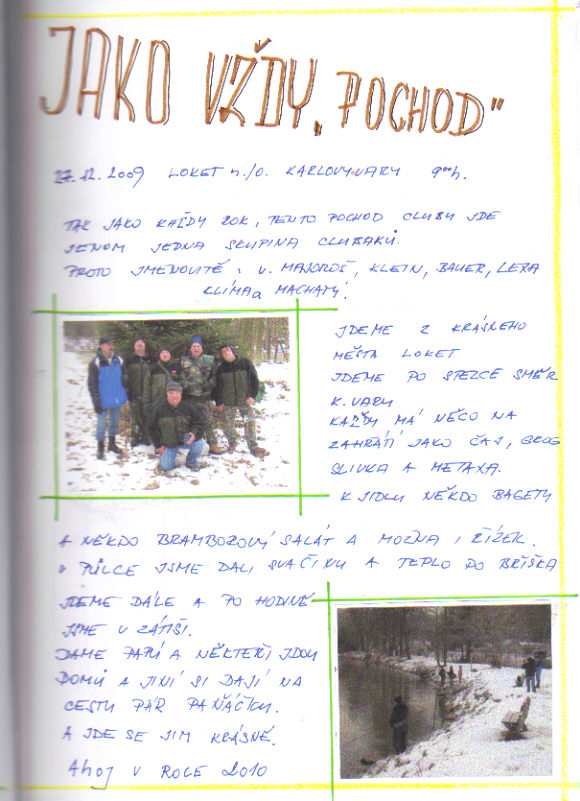 JAKO VŽDY „POCHOD"
27.12.2009 LOKET n./O. KARLOVY VARY 9ººh.
TAK JAKO KAŽDÝ ROK, TENTO POCHOD CLUBU JDE
JENOM JEDNA SKUPINA CLUBAKŮ.
PROTO JMENOVITĚ: V. MAJOROŠ, KLEIN, BAUER, LEXA
KLÍMA a MACHATÝ.
JDEME Z KRÁSNEHO
MĚSTA LOKET
JDEME PO STEZCE SMĚR
K. VARY
KAŽDÝ MÁ NĚCO NA
ZAHŘÁTÍ JAKO ČAJ, GROG
SLIVKA A METAXA.
K JIDLU NĚKDO BAGETY
A NĚKDO BRAMBOROVÝ SALÁT A MOŽNA I ŘÍZEK.
V PŮLCE JSME DALI SVAČINU A TEPLO DO BŘÍŠKA
JDEME DÁLE A PO HODINĚ
JSME V ZÁTIŠÍ.
DAME PAPŮ A NĚKTEŘÍ JDOU
DOMŮ A JINÍ SI DAJÍ NA
CESTU PÁR PAŇÁČKU.
A JDE SE JIM KRÁSNĚ.
AHOJ V ROCE 2010